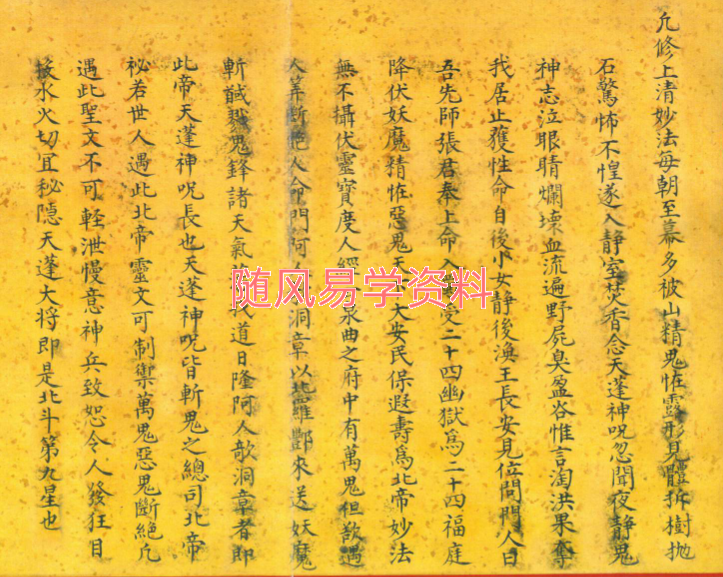 凢修上清妙法每朝至幕多被山精鬼恠露形見體拆樹抛
石驚怖不惶遂入靜室焚香念天蓬神呪忽聞夜靜鬼
神志泣眼睛爛壊血流遍野屍臭盈谷惟言淘洪果奪
我居止獲性命自後小女靜後渙王長安見佐問門人曰
吾先師張君奉上命入 受二十四幽獄爲二十四福庭
降伏妖魔精恠惡鬼天下大安民保遐壽爲北帝妙法
無不攝伏靈寶度人經 泉曲之府中有萬鬼但欲遏
人筭斷絶人命門阿 洞章以攝 酆來送妖魔
斬馘 鬼鋒諸天氣 我道日隆阿人歌洞章者即
此帝天蓬神呪長也天蓬神呪皆斬鬼之總司北帝
秘若世人遇此北帝靈文可制禦萬鬼惡鬼斷絶凢
遇此聖文不可輕泄慢意神兵致恕令人發狂目
投水火切宜秘隱天蓬大将即是北斗第九星也
随风易学资料